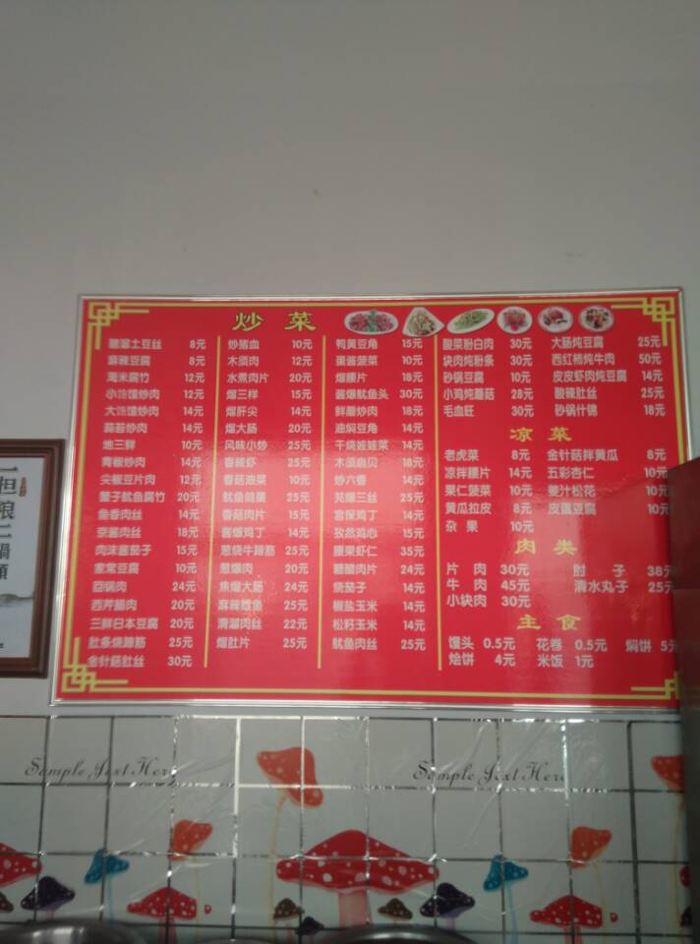 炒菜
醋溜土豆丝 8元
麻辣豆腐 8元
海米腐竹 12元
小饹馇炒肉 12元
大饹馇炒肉 14元
蒜苔炒肉 14元
地三鲜 10元
青椒炒肉 14元
尖椒豆片肉 12元
蟹子鱿鱼腐竹 20元
鱼香肉丝 14元
京酱肉丝 18元
肉沫酱茄子 15元
家常豆腐 10元
回锅肉 24元
西芹腊肉 20元
三鲜日本豆腐 20元
肚条烧蹄筋 25元
金针菇肚丝 30元
炒猪血 10元
木须肉 12元
水煮肉片 20元
熘三样 15元
熘肝尖 14元
熘大肠 20元
风味小炒 25元
香酥虾 25元
香菇油菜 10元
鱿鱼蒜薹 25元
香菇肉片 15元
酱爆鸡丁 14元
葱烧牛蹄筋 25元
葱爆肉 20元
焦熘大肠 24元
麻辣鳝鱼 25元
滑溜肉丝 22元
熘肚片 25元
鸭黄豆角 15元
蛋酱菠菜 10元
熘腰片 18元
酱爆鱿鱼头 30元
鲜蘑炒肉 18元
油焖豆角 14元
干烧娃娃菜 14元
木须扇贝 18元
炒六香 14元
芫爆三丝 25元
宫保鸡丁 14元
孜然鸡心 15元
腰果虾仁 35元
糖醋肉片 24元
烧茄子 14元
椒盐玉米 14元
松籽玉米 14元
鱿鱼肉丝 25元
酸菜粉白肉 30元
块肉炖粉条 30元
砂锅豆腐 10元
小鸡炖蘑菇 28元
毛血旺 30元
大肠炖豆腐 25元
西红柿炖牛肉 50元
皮皮虾肉炖豆腐 14元
酸辣肚丝 25元
砂锅什锦 18元
凉菜
老虎菜 8元 金针菇拌黄瓜 8元
凉拌腰片 14元 五彩杏仁 10元
果仁菠菜 10元 姜汁松花 10元
黄瓜拉皮 8元 皮蛋豆腐 10元
杂果 10元
肉类
片肉 30元 肘子 38元
牛肉 45元 清水丸子 25元
小块肉 30元
主食
馒头 0.5元 花卷 0.5元 焖饼 5元
烩饼 4元 米饭 1元
Sample Text Here
Sample Text Here